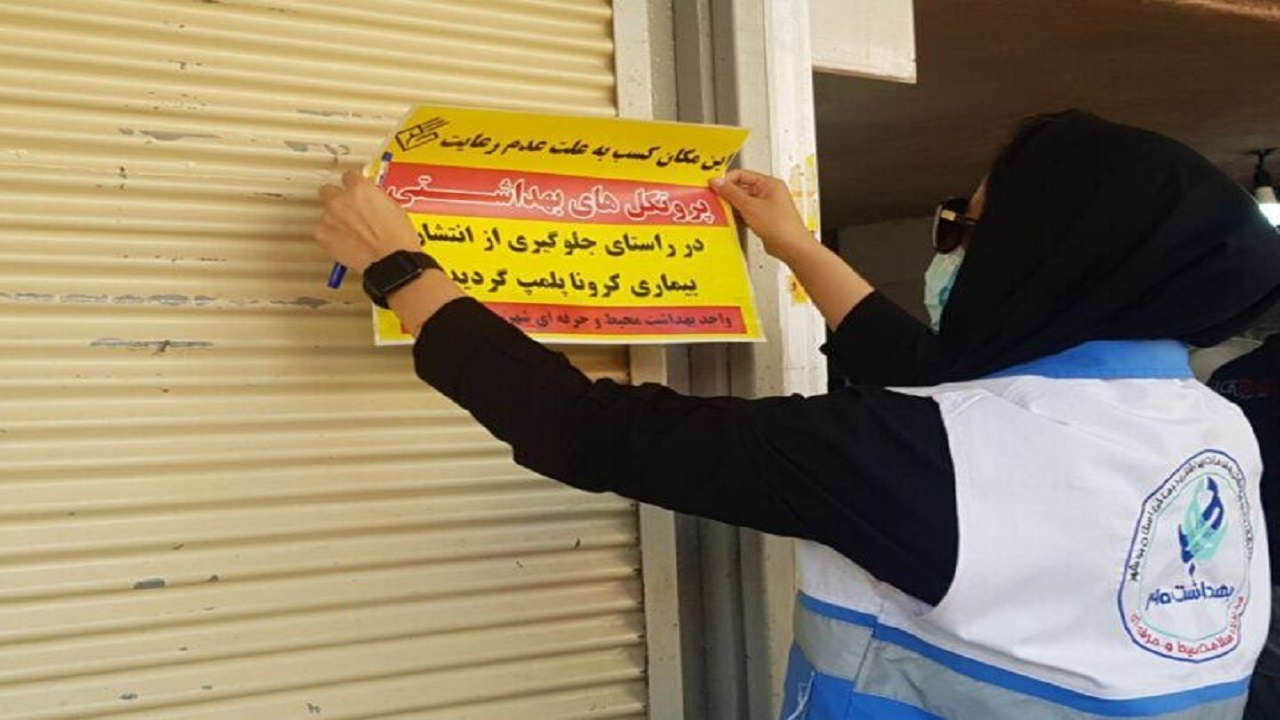 این مکان کسب به علت عدم رعایت
پروتکل های بهداشتی
در راستای جلوگیری از انتشار
بیماری کرونا پلمپ گردید
واحد بهداشت محیط و حرفه ای شهر
بهداشت
محیط و حرفه ای